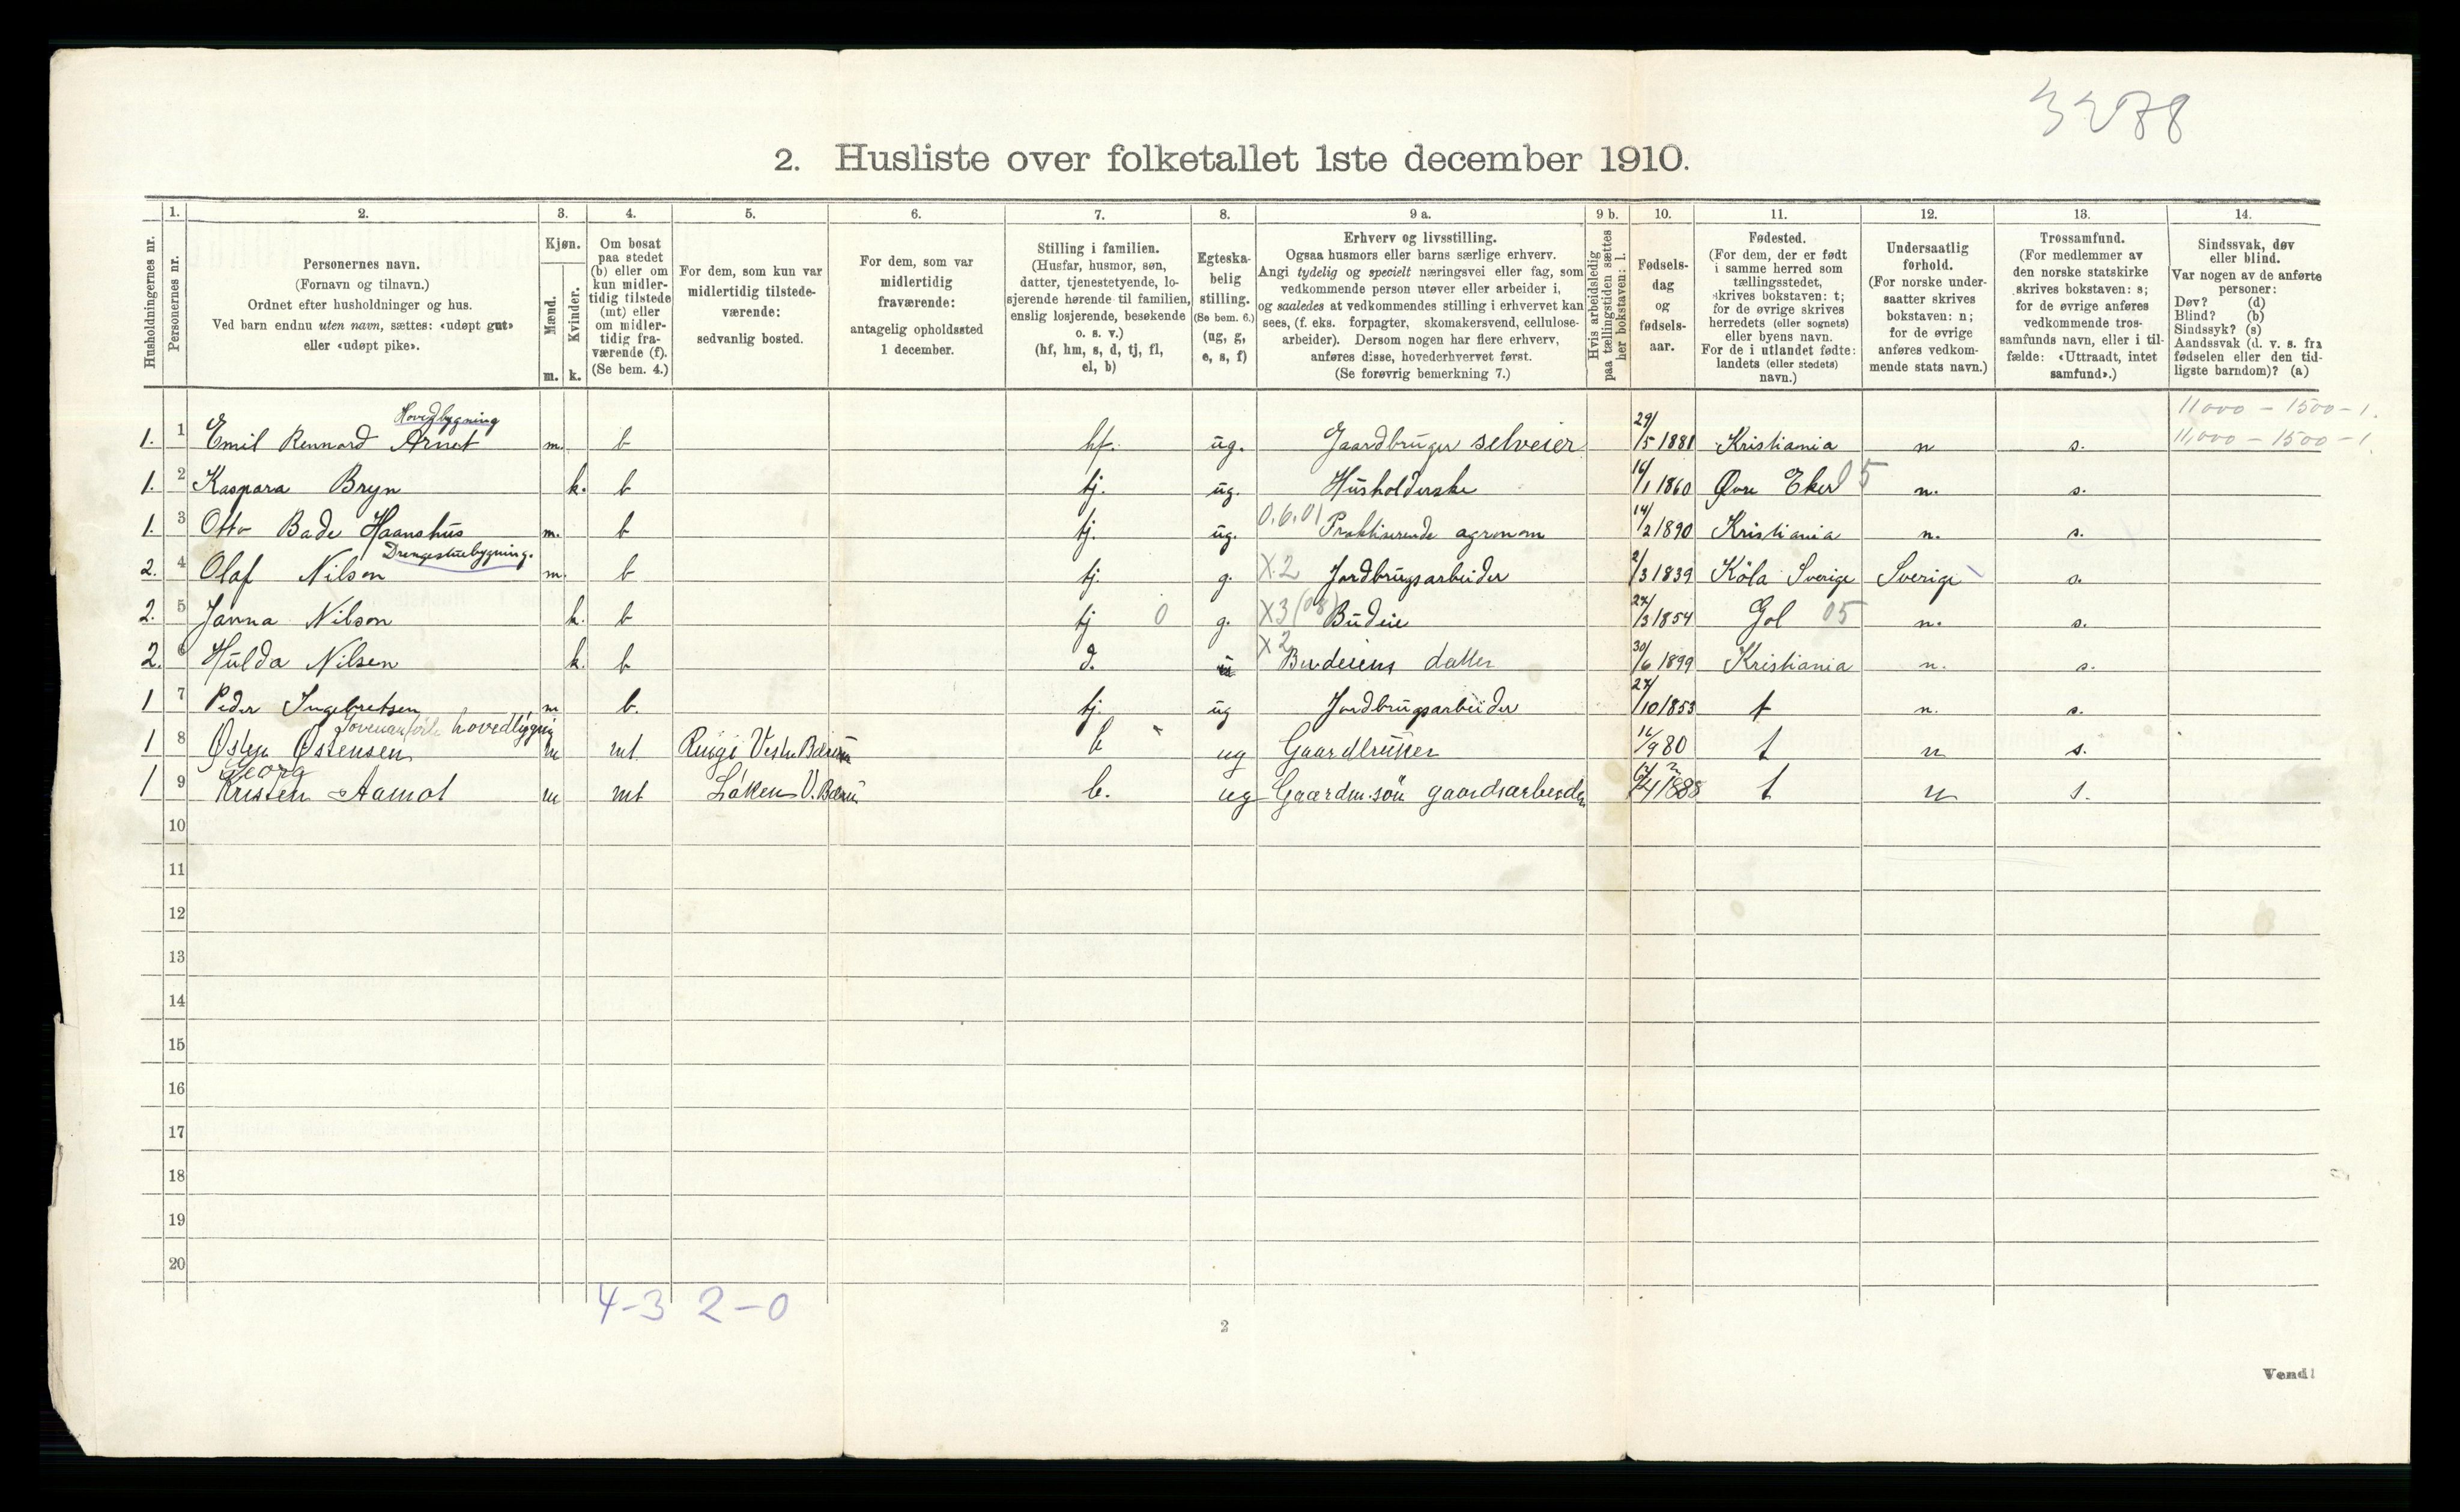 3288
2. Husliste over folketallet 1ste december 1910.
Husholdningernes nr.
1. Personernes nr.
2. Personernes navn. (Fornavn og tilnavn.) Ordnet efter husholdninger og hus. Ved barn endnu uten navn, sættes: «udøpt gut» eller «udøpt pike».
3. Kjøn. Mænd. m. Kvinder. k.
4. Om bosat paa stedet (b) eller om kun midlertidig tilstede (mt) eller om midlertidig fraværende (f). (Se bem. 4.)
5. For dem, som kun var midlertidig tilstedeværende: sedvanlig bosted.
6. For dem, som var midlertidig fraværende: antagelig opholdssted 1 december.
7. Stilling i familien. (Husfar, husmor, søn, datter, tjenestetyende, losjerende hørende til familien, enslig losjerende, besøkende o. s. v.) (hf, hm, s, d, tj, fl, el, b)
8. Egteskabelig stilling. (Se bem. 6.) (ug, g, e, s, f)
9 a. Erhverv og livsstilling. Ogsaa husmors eller barns særlige erhverv. Angi tydelig og specielt næringsvei eller fag, som vedkommende person utøver eller arbeider i, og saaledes at vedkommendes stilling i erhvervet kan sees, (f. eks. forpagter, skomakersvend, cellulosearbeider). Dersom nogen har flere erhverv, anføres disse, hovederhvervet først. (Se forøvrig bemerkning 7.)
9 b. Hvis arbeidsledig paa tællingstiden sættes her bokstaven: l.
10. Fødselsdag og fødselsaar.
11. Fødested. (For dem, der er født i samme herred som tællingsstedet, skrives bokstaven: t; for de øvrige skrives herredets (eller sognets) eller byens navn. For de i utlandet fødte: landets (eller stedets) navn.)
12. Undersaatlig forhold. (For norske undersaatter skrives bokstaven: n; for de øvrige anføres vedkommende stats navn.)
13. Trossamfund. (For medlemmer av den norske statskirke skrives bokstaven: s; for de øvrige anføres vedkommende trossamfunds navn, eller i tilfælde: «Uttraadt, intet samfund».)
14. Sindssvak, døv eller blind. Var nogen av de anførte personer: Døv? (d) Blind? (b) Sindssyk? (s) Aandssvak (d. v. s. fra fødselen eller den tidligste barndom)? (a)
11000 - 1500 - 1.
Hovedbygning
1. 1 Emil Rennord Arnet m. b hf. ug. Gaardbruger selveier 29/5 1881 Kristiania n s. 11,000 - 1500 - 1
1. 2 Kaspara Bryn k. b tj. ug. Husholderske 16/1 1860 Øvre Eker 05 n. s.
1. 3 Otto Bade Haanshus m. b tj. ug. 0.6.01 Praktiserende agronom 14/2 1890 Kristiania n. s.
Drengestuebygning.
2. 4 Olaf Nilson m. b tj. g. X2 Jordbrugsarbeider 2/3 1839 Köla Sverige Sverige s.
2. 5 Janna Nilson k. b tj 0 g. X3 (08) Budeie 27/3 1854 Gol 05 n. s.
2. 6 Hulda Nilsen k. b d. X2 Budeiens datter 30/6 1899 Kristiania n. s.
1 7 Peder Ingebretsen m b. tj. ug Jordbrugsarbeider 27/10 1853 t n. s.
hovedbygning
1 8 Østen Østensen m mt Ruigi Vestre Bærum b ug Gaardbruker 16/9 80 t n s.
Georg
1 9 Kristen Aamot m mt Løken V. Bærum b. ug Gaardm. søn gaardsarbeider 4 1888 t n s.
10
11
12
13
14
15
16
17
18
19
20
4-3 2-0
2
Vend!